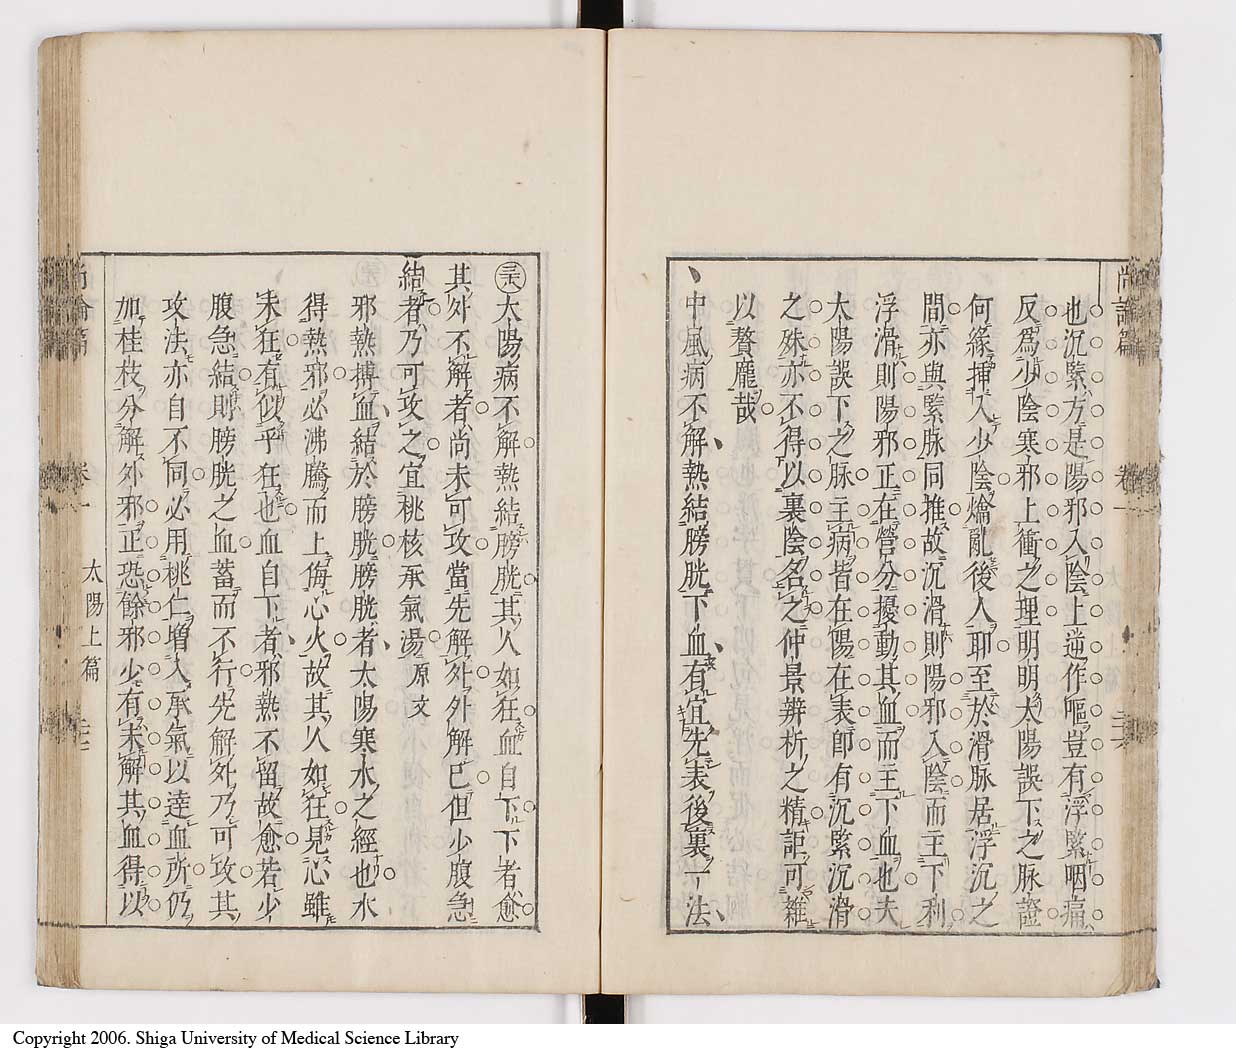 尚論篇 卷一
也沉緊方是陽邪入陰上逆作嘔豈有浮緊咽痛
反爲少陰寒邪上衝之理明明太陽誤下之脉證
何緣挿入少陰爚亂後人耶至於滑脉居浮沉之
間亦與緊脉同推故沉滑則陽邪入陰而主下利
浮滑則陽邪正在營分擾動其血而主下血也夫
太陽誤下之脉主病皆在陽在表卽有沉緊沉滑
之殊亦不得以裏陰名之仲景辨析之精詎可雜
以贅龐哉
中風病不解熱結膀胱下血有宜先表後裏一法
太陽病不解熱結膀胱其人如狂血自下下者愈
其外不解者尚未可攻當先解外外解已但少腹急
結者乃可攻之宜桃核承氣湯原文
邪熱搏血結於膀胱膀胱者太陽寒水之經也水
得熱邪必沸騰而上侮心火故其人如狂見心雖
未狂有似乎狂也血自下者邪熱不留故愈若少
腹急結則膀胱之血蓄而不行先解外乃可攻其
攻法亦自不同必用桃仁增入承氣以達血所仍
加桂枝分解外邪正恐餘邪少有未解其血得以
尚論篇 卷一 太陽上篇
Copyright 2006. Shiga University of Medical Science Library